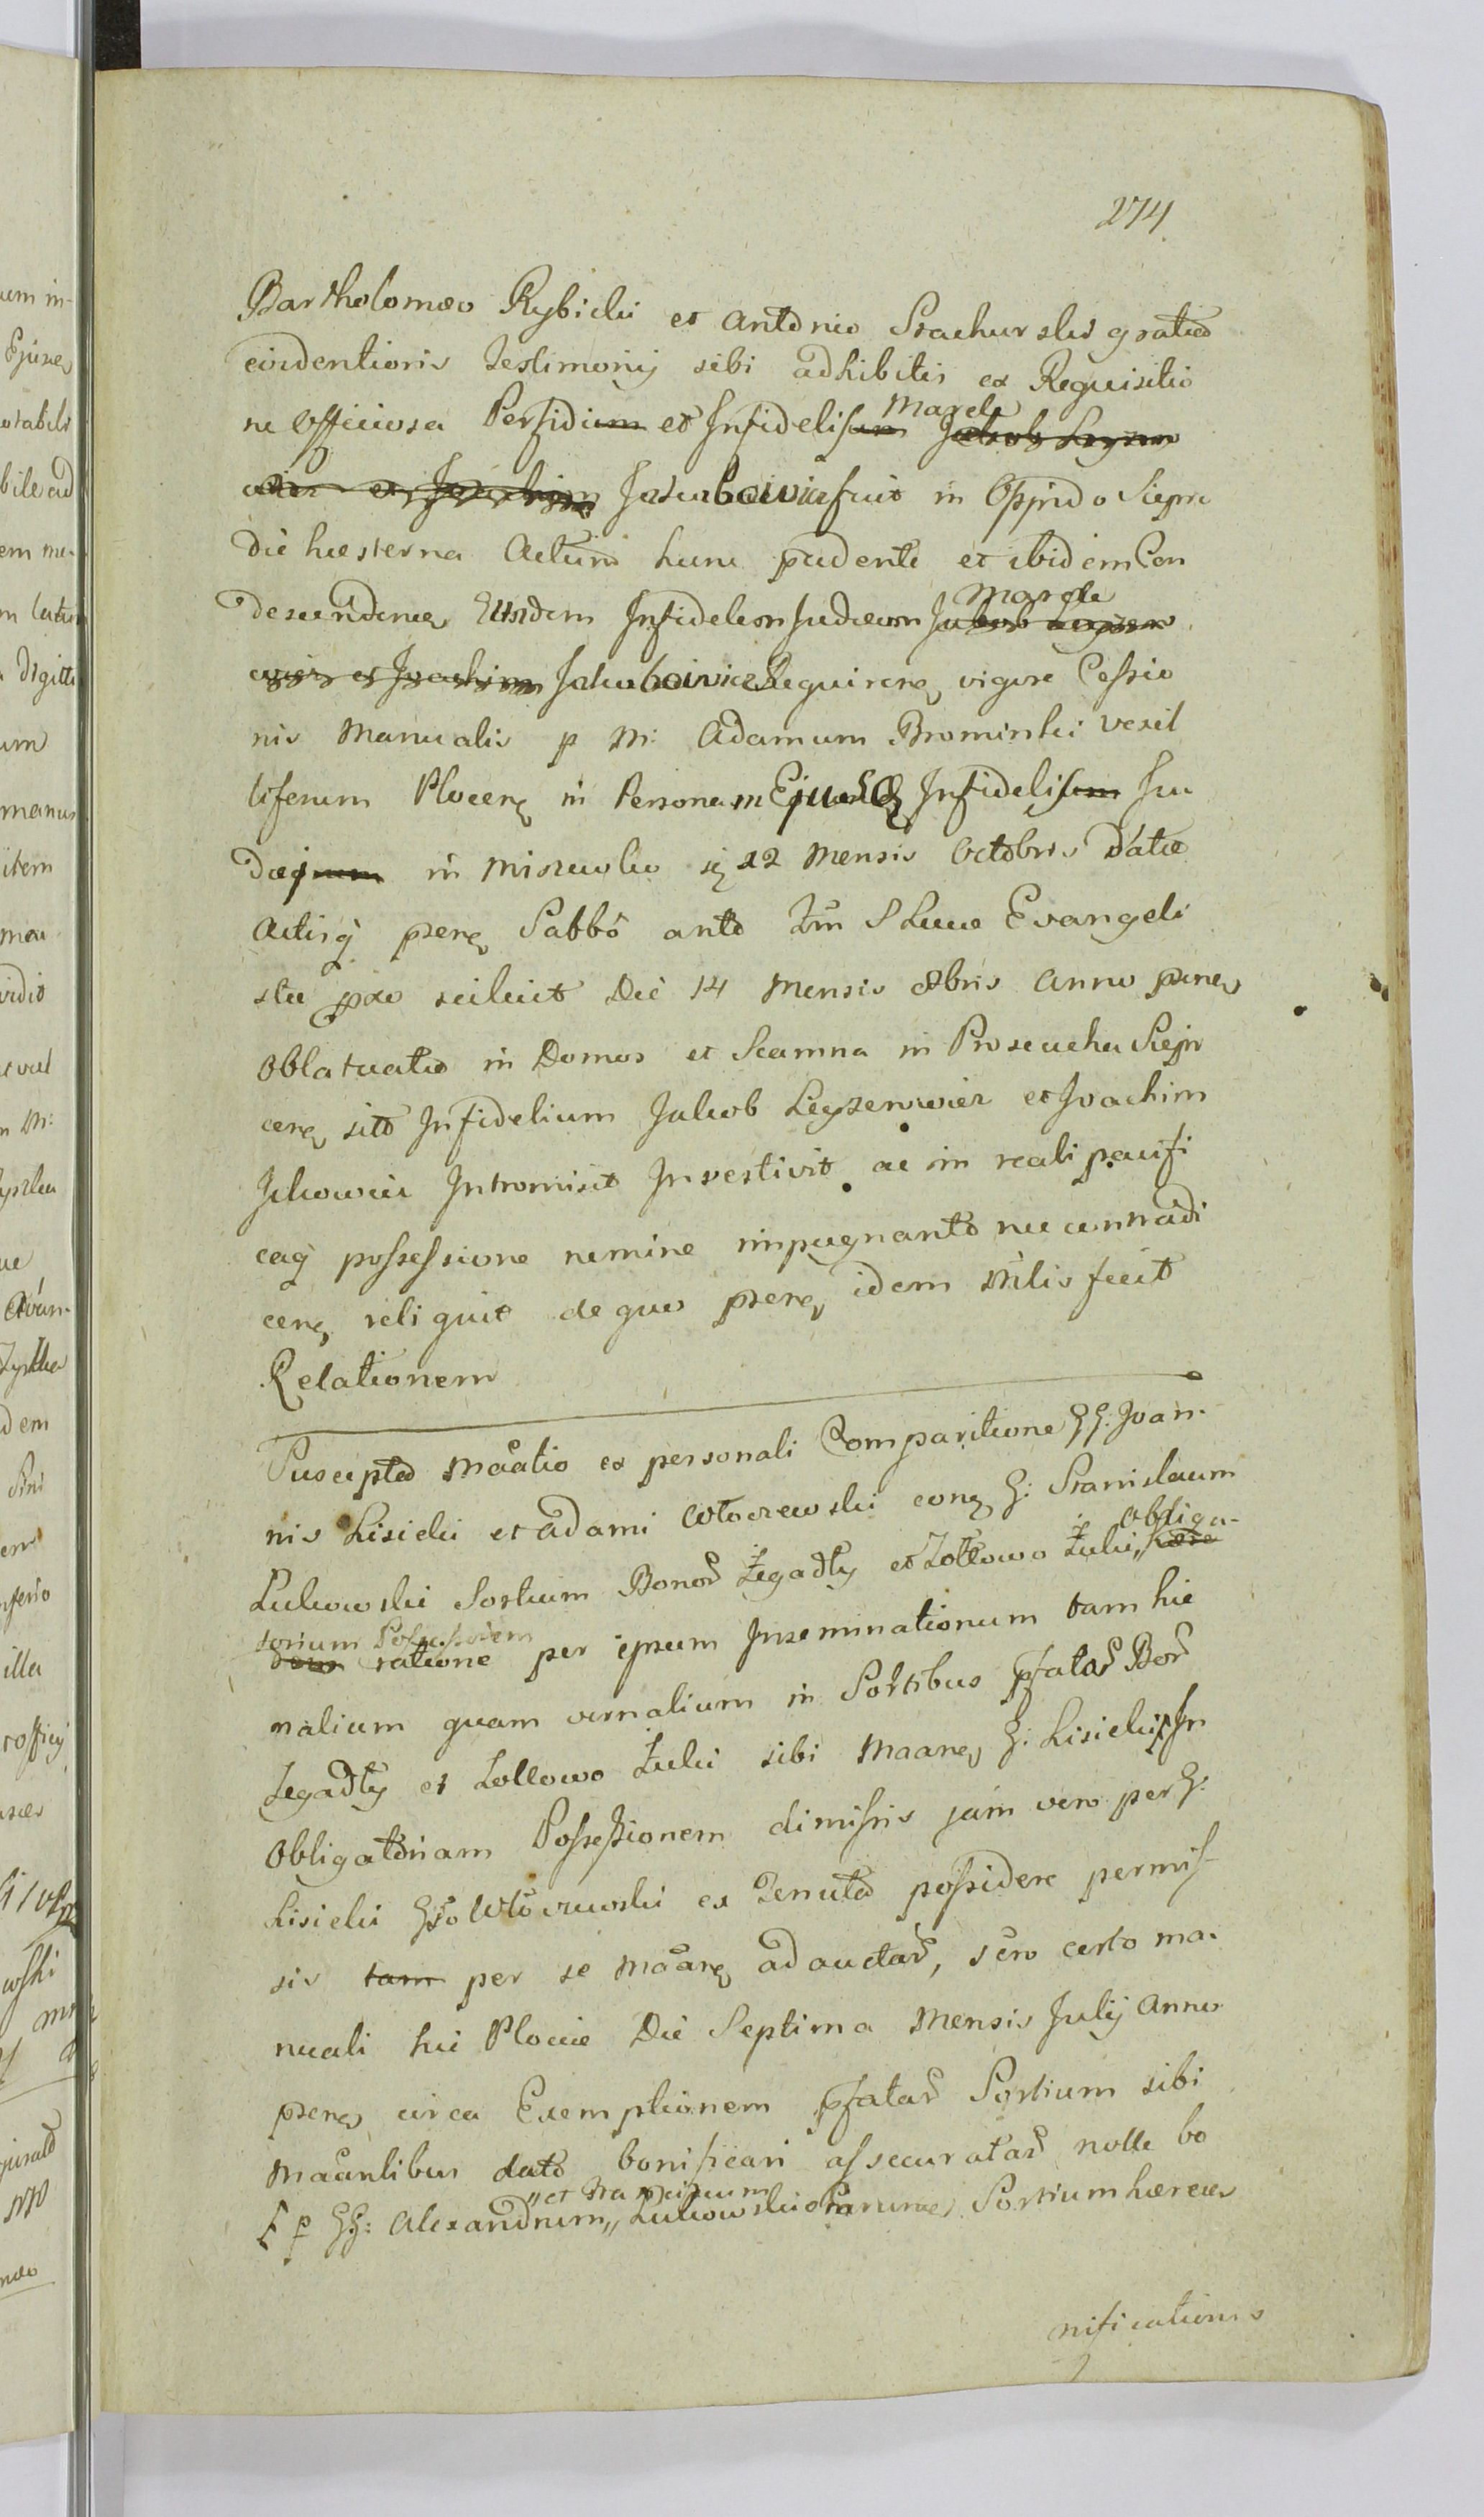 274
Bartholomæo Rybicki et Antonio Stachurski gratia
evidentioris Testimonij sibi adhibitis ex Requisitio
ne Officiosa Perfidium et Infidelisum Marek Jakob Leyzer
owicz et Joachim Jakubowicz fuit in Oppido Siepre
Die hesterna Actum hunc ptdente et ibidem Con
descendenes Eundem Infidelem Judæum Marek Jakob Leyzer
owicz et Joachim Jakubowicz Requirens vigore Cessio
nis Manualis p M: Adamum Brominski vexil
liferum Plocens in Personam Ejusdem Infidelisum Ju
dæjum in Miszewko 12 Mensis Octobris Datæ
Actisq psens Sabbo ante Fm S Lucæ Evangeli
stæ pxo scilicet Die 14 Mensis 8bris Anno psenes
Oblatuatæ in Domos et Scamna in Proseucha Siepr
cens sita Infidelium Jakob Leyzerowicz et Joachim
Jckowicz Intromisit Investivit ac in reali pacifi
caq possessione nemine impugnante nec contradi
cens reliquit de quo psens idem Mtlis fecit
Relationem
Suscepta Maatio ex personali Comparitione GG. Joan-
nis Lisicki et Adami Wtoczewski cong G: Stanislaum
Lukowski Sortium Bonor Żegadły et Zołtowo Żuki, Obliga-
torium Possessorem ratione per ipsum Inseminationum tam hie
malium quam vernalium in Sortibus pfatar Bor
Zegadły et Zołtowo Żuki sibi Maanes G. Lisicki, In
Obligatoriam Possessionem dimissis jam vero per G:
Lisicki Gso Wtoczewski ex Tenuta possidere permis-
sis tam per se Maans ad auctar, sero certo ma-
nuali hic Plociæ Die Septima Mensis Julij Anno
psens circa Exemptionem pfatar Sortium sibi
Maantibus dato bonificari assecuratar nolle bo
p GG: Alexandrum, et Franciscum Lukowskie Sortium hæredes
nificationis